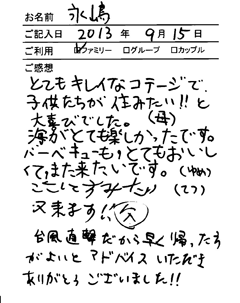 お名前 永嶋
ご記入日 2013 年 9月 15日
ご利用 ☑ファミリー □グループ □カップル
ご感想
とてもキレイなコテージで、
子供たちが住みたい!!と
大喜びでした。(母)
海がとても楽しかったです。
バーベキューも、とてもおいし
くて、また来たいです。(ゆめ)
又来ます!! 父
台風直撃だから早く帰った方
がよいとアドバイスいただき
ありがとうございました!!